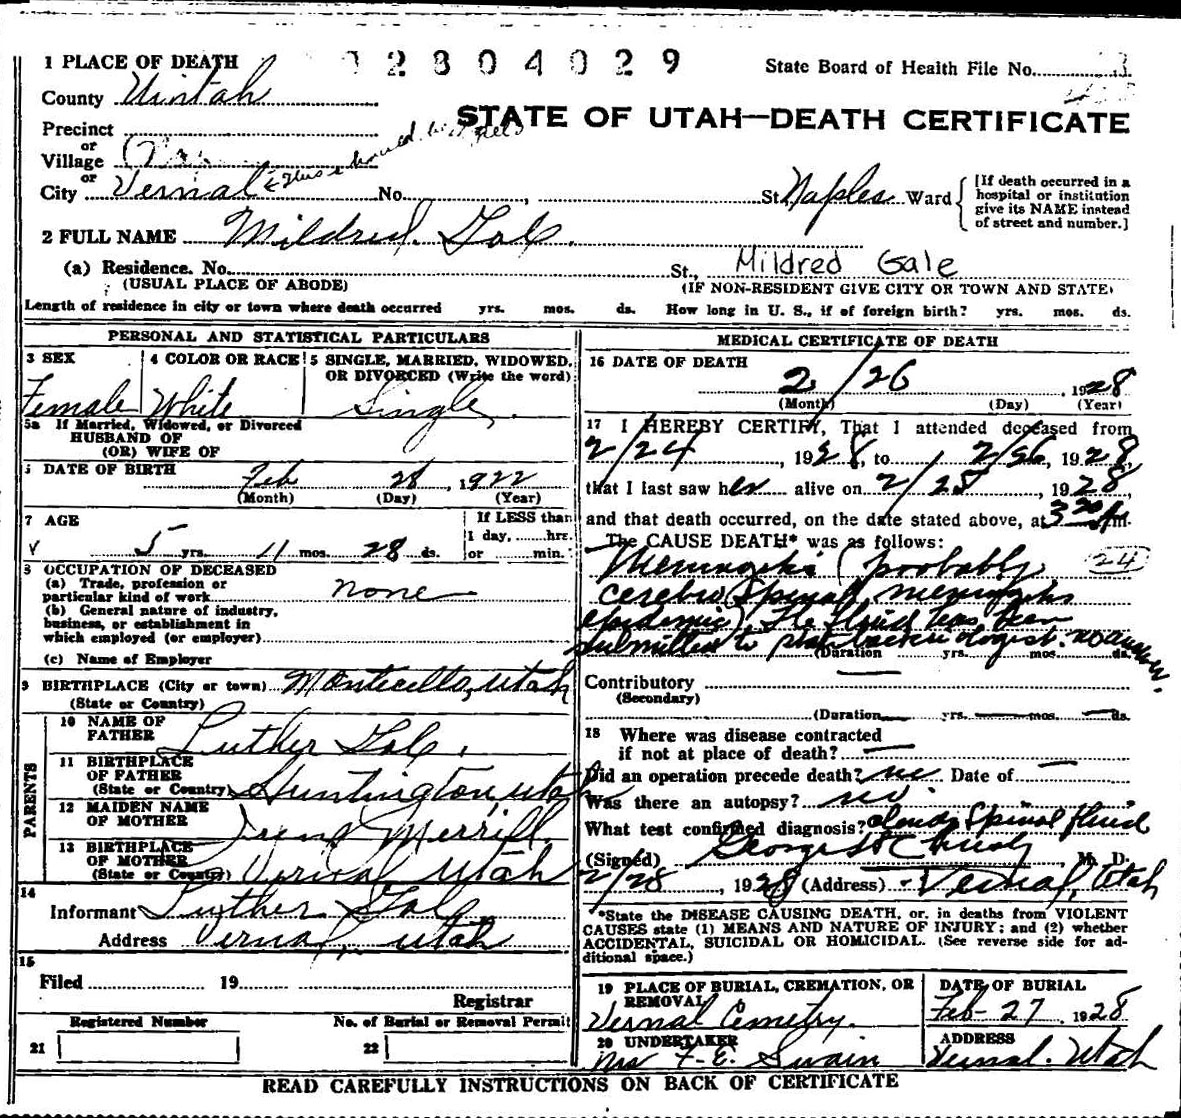 1 PLACE OF DEATH 2804029 State Board of Health File No.
County Uintah
STATE OF UTAH—DEATH CERTIFICATE
Precinct
or
Village
or
City Vernal No. St. Naples Ward [If death occurred in a hospital or institution give its NAME instead of street and number.]
2 FULL NAME Mildred Gale
(a) Residence. No. St., Mildred Gale
(USUAL PLACE OF ABODE) (IF NON-RESIDENT GIVE CITY OR TOWN AND STATE)
Length of residence in city or town where death occurred yrs. mos. ds. How long in U. S., if of foreign birth? yrs. mos. ds.
PERSONAL AND STATISTICAL PARTICULARS
3 SEX 4 COLOR OR RACE 5 SINGLE, MARRIED, WIDOWED, OR DIVORCED (Write the word)
Female White Single
5a If Married, Widowed, or Divorced
HUSBAND OF
(OR) WIFE OF
DATE OF BIRTH Feb 28, 1922
(Month) (Day) (Year)
7 AGE If LESS than
5 yrs. 11 mos. 28 ds. 1 day, hrs. or min.
OCCUPATION OF DECEASED
(a) Trade, profession or
particular kind of work none
(b) General nature of industry,
business, or establishment in
which employed (or employer)
(c) Name of Employer
9 BIRTHPLACE (City or town) Monticello, Utah
(State or Country)
PARENTS
10 NAME OF
FATHER Luther Gale.
11 BIRTHPLACE
OF FATHER
(State or Country) Huntington, Utah
12 MAIDEN NAME
OF MOTHER Merrill
13 BIRTHPLACE
OF MOTHER
(State or Country) Vernal Utah
14
Informant Luther Gale
Address Vernal, Utah
15
Filed 19
Registrar
Registered Number No. of Burial or Removal Permit
21 22
MEDICAL CERTIFICATE OF DEATH
16 DATE OF DEATH
2/26 1928
(Month) (Day) (Year)
17 I HEREBY CERTIFY, That I attended deceased from
2/24, 1928, to 2/26, 1928,
that I last saw her alive on 2/25, 1928,
and that death occurred, on the date stated above, at 3 m.
The CAUSE DEATH* was as follows:
Meningitis (probably 24
cerebro spinal meningitis
epidemic). The fluid has been
submitted to state bacteriologist. no answer.
(Duration yrs. mos. ds.
Contributory
(Secondary)
(Duration yrs. mos. ds.
18 Where was disease contracted
if not at place of death?
Did an operation precede death? no Date of
Was there an autopsy? no.
What test confirmed diagnosis? cloudy spinal fluid
(Signed) George H Christy, M. D.
2/28, 1928 (Address) Vernal, Utah
*State the DISEASE CAUSING DEATH, or, in deaths from VIOLENT
CAUSES state (1) MEANS AND NATURE OF INJURY; and (2) whether
ACCIDENTAL, SUICIDAL OR HOMICIDAL. (See reverse side for ad-
ditional space.)
19 PLACE OF BURIAL, CREMATION, OR REMOVAL DATE OF BURIAL
Vernal Cemetry. Feb- 27 1928
20 UNDERTAKER ADDRESS
Mrs F. E. Swain Vernal. Utah
READ CAREFULLY INSTRUCTIONS ON BACK OF CERTIFICATE